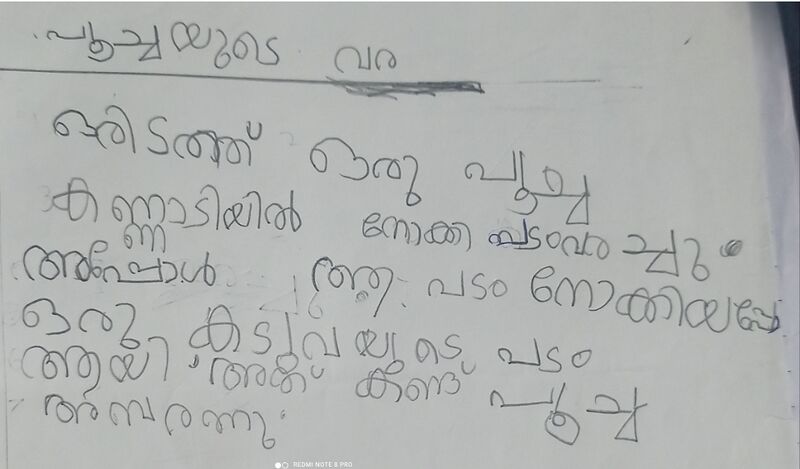 പൂച്ചയുടെ വര
ഒരിടത്ത് ഒരു പൂച്ച
കണ്ണാടിയിൽ നോക്കി പടംവരച്ചു
അപ്പോൾ ആ പടം നോക്കിയപ്പോൾ
ഒരു കടുവയുടെ പടം
ആയി അത് കണ്ട് പൂച്ച
അമ്പരന്നു
REDMI NOTE 8 PRO